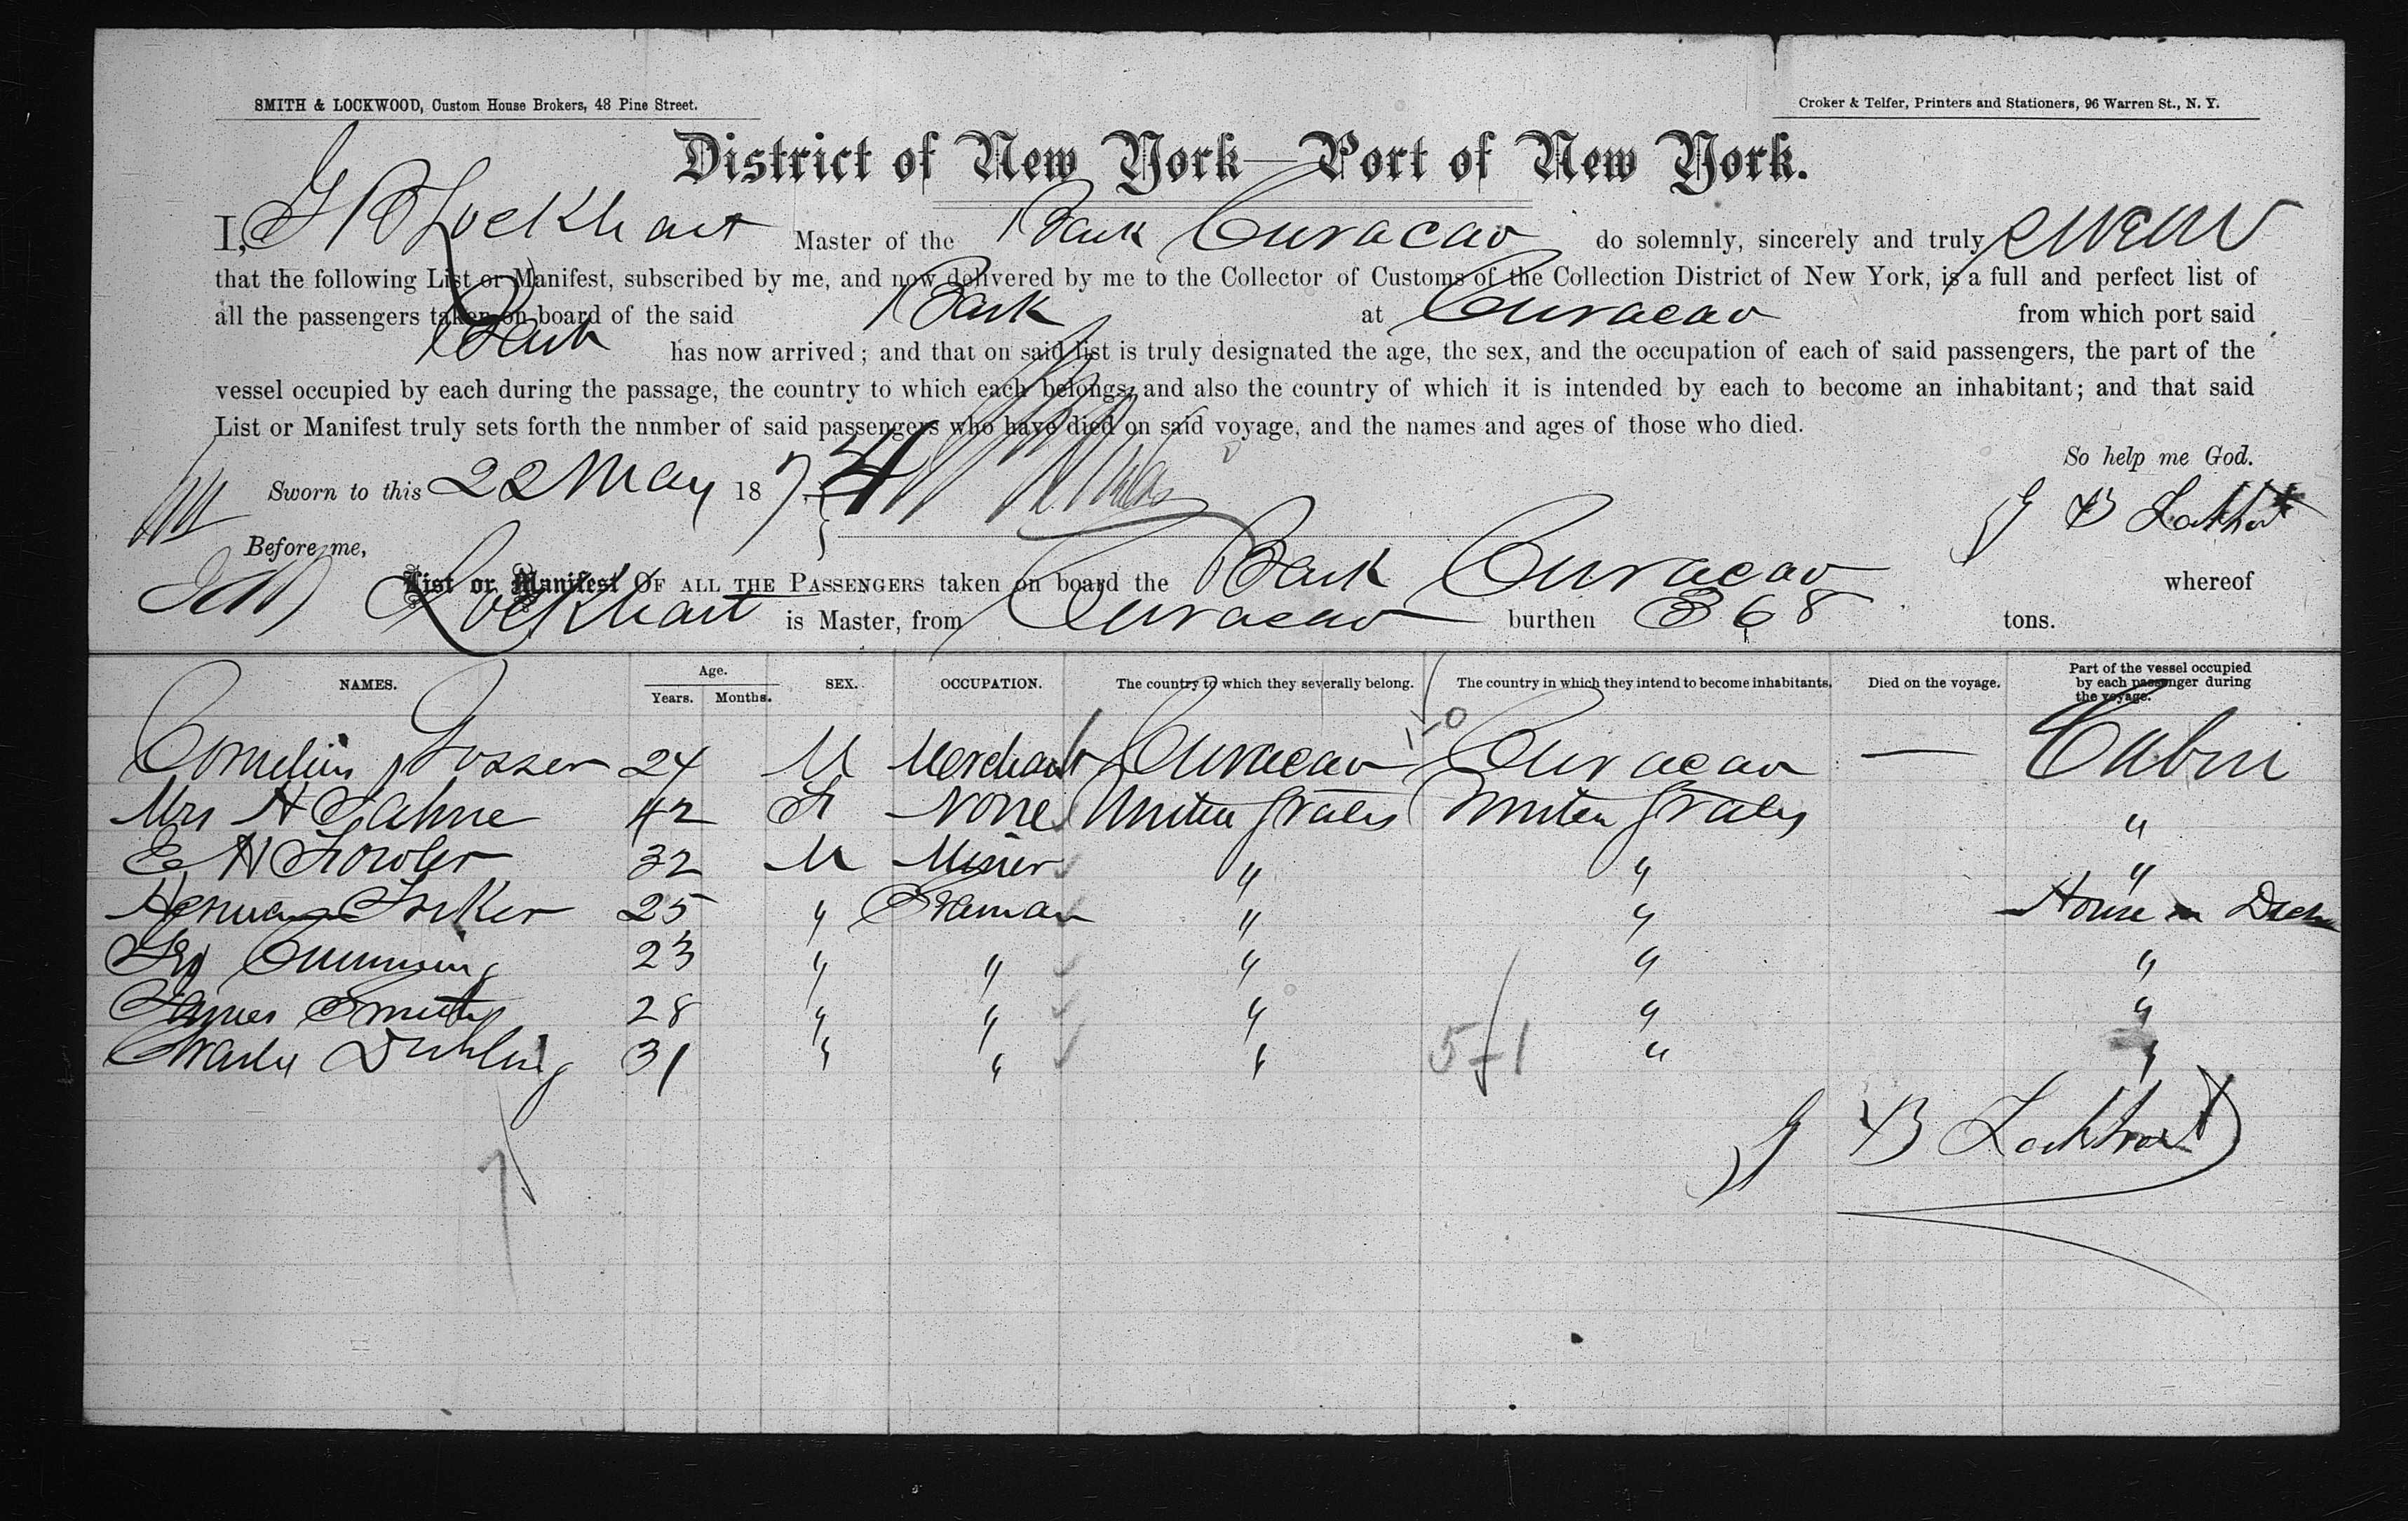 SMITH & LOCKWOOD, Custom House Brokers, 48 Pine Street.
Croker & Telfer, Printers and Stationers, 96 Warren St., N. Y.
District of New York—Port of New York.
I, G B Lockhart Master of the Bark Curacao do solemnly, sincerely and truly swear
that the following List or Manifest, subscribed by me, and now delivered by me to the Collector of Customs of the Collection District of New York, is a full and perfect list of
all the passengers taken on board of the said Bark at Curacao from which port said
Bark has now arrived; and that on said list is truly designated the age, the sex, and the occupation of each of said passengers, the part of the
vessel occupied by each during the passage, the country to which each belongs, and also the country of which it is intended by each to become an inhabitant; and that said
List or Manifest truly sets forth the nnmber of said passengers who have died on said voyage, and the names and ages of those who died.
So help me God.
Sworn to this 22 May 187 4
G B Lockhart
Before me,
List or Manifest OF ALL THE PASSENGERS taken on board the Bark Curacao whereof
Lockhart is Master, from Curacao burthen 368 tons.
NAMES. Age. Years. Months. SEX. OCCUPATION. The country to which they severally belong. The country in which they intend to become inhabitants. Died on the voyage. Part of the vessel occupied by each passenger during the voyage.
Cornelius 24 M Merchant Curacao Curacao — Cabin
Mrs H 42 F None United States United States "
E H Fowler 32 M Miner " " "
Herman 25 " Seaman " " House on Deck
Geo Cumming 23 " " " " "
James Smith 28 " " " " "
Charles 31 " " " " "
5-1
G B Lockhart